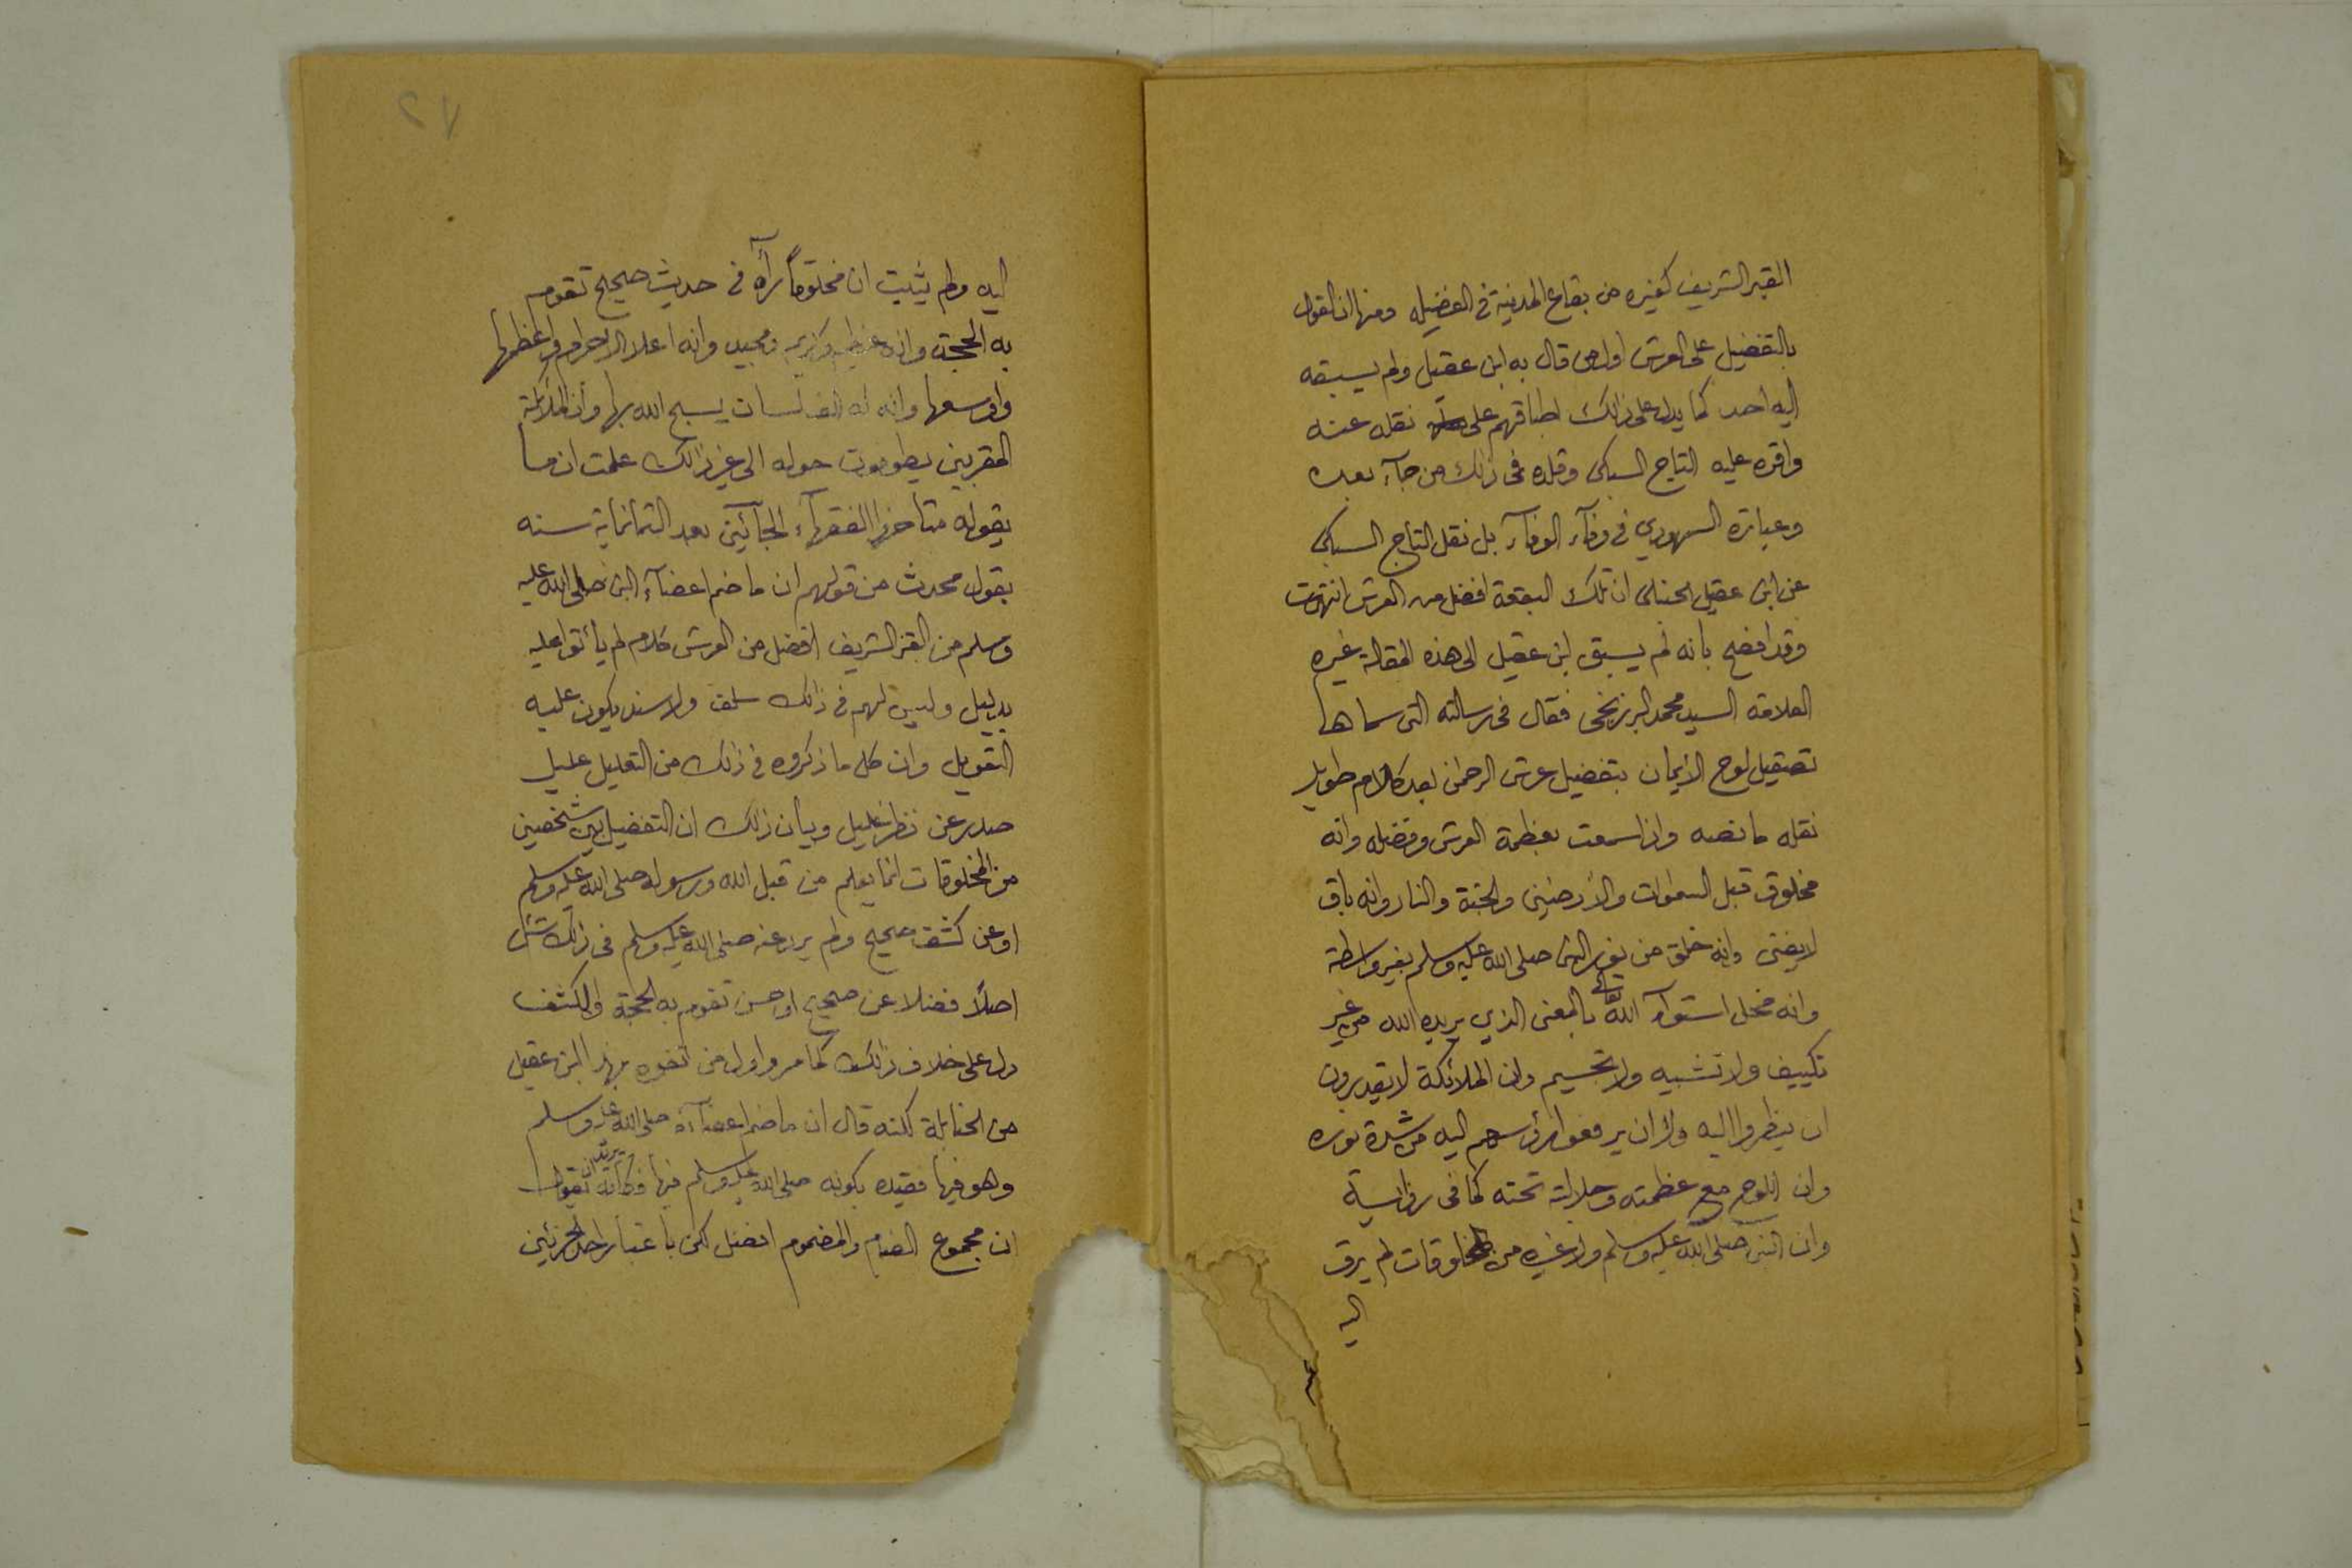 القبر الشريف كغيره من بقاع المدينة في الفضيله ومنها ان القول
بالتفضيل على العرش اول من قال به ابن عقيل ولم يسبقه
اليه احد كما يدل على ذالك اطباقهم على نقله عنه
واقره عليه التاج السبكى وقلده فى ذالك من جآء بعده
وعبارة السمهودي في وفآء الوفآء بل نقل التاج السبكى
عن ابن عقيل الحنبلى ان تلك البقعة افضل من العرش انتهت
وقد افصح بانه لم يسبق ابن عقيل الى هذه المقالة غيره
العلامة السيد محمد البرزنجى فقال فى رسالته التى سماها
تصقيل لوح الايمان بتفضيل عرش الرحمن بعد كلام طويل
نقله ما نصه واذا سمعت بعظمة العرش وفضله وانه
مخلوق قبل السموات والأرضين والجنة والنار وانه باق
لايفنى وانه خلق من نور النبى صلى الله عليه وسلم بغير واسطة
وانه محل استوآء الله تعالى بالمعنى الذي يريده الله من غير
تكييف ولا تشبيه ولا تجسيم وان الملائكة لا يقدرون
ان ينظروا اليه ولا ان يرفعوا رؤسهم اليه من شدة نوره
وان اللوح مع عظمته وجلالته تحته كما فى رواية
وان النبى صلى الله عليه وسلم ولا غيره من المخلوقات لم يرق
اليه
٢٧
اليه ولم يثبت ان مخلوقاً رآه في حديث صحيح تقوم
به الحجة وانه عظيم وكريم ومجيد وانه اعلا الاجرام واعظمها
واوسعها وانه له الف لسان يسبح الله بها وان الملائكة
المقربين يطوفون حوله الى غير ذالك علمت ان ما
يقوله متاخروا الفقهآء الجآئين بعد الثمانماية سنه
بقول محدث من قولهم ان ما ضم اعضآء النبى صلى الله عليه
وسلم من القبر الشريف افضل من العرش كلام لم يأتوا عليه
بدليل وليس لهم في ذالك سلف ولا سند يكون عليه
التعويل وان كل ما ذكروه في ذلك من التعليل عليل
صدر عن نظر كليل وبيان ذالك ان التفضيل بين شخصين
من المخلوقات انما يعلم من قبل الله ورسوله صلى الله عليه وسلم
او عن كشف صحيح ولم يرد عنه صلى الله عليه وسلم فى ذالك شئ
اصلاً فضلا عن صحيح او حسن تقوم به الحجة والكشف
دل على خلاف ذالك كما مر واول من تفوه بهذا ابن عقيل
من الحنابلة لكنه قال ان ما ضم اعضآءه صلى الله عليه وسلم
وهو فيها فقيده بكونه صلى الله عليه وسلم فيها فكأنه يريد ان يقول
ان مجموع الضام والمضموم افضل لكن باعتبار احد الجزئين